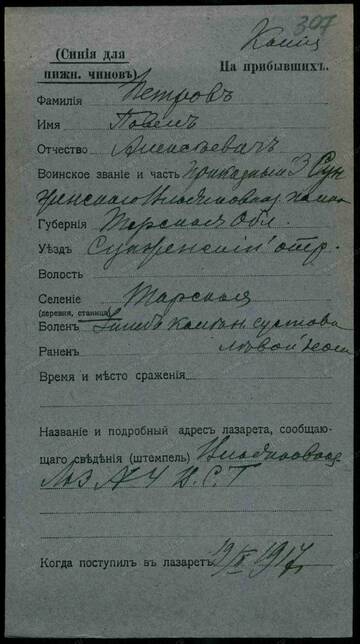 307
(Синія для
нижн. чиновъ)
На прибывшихъ.
Фамилія Петровъ
Имя Павелъ
Отчество Алексѣевичъ
Воинское званіе и часть приказный 3 Сун
женско
Губернія Терская Обл.
Уѣздъ Сунженскій отд.
Волость
Селеніе Тарская
(деревня, станица)
Боленъ Ушибъ колѣн. сустова
Раненъ лѣвой ноги
Время и мѣсто сраженія
Названіе и подробный адресъ лазарета, сообщаю-
щаго свѣдѣнія (штемпель) Владикавказ
Лаз № 4 В. С. Г.
Когда поступилъ въ лазаретъ 1917